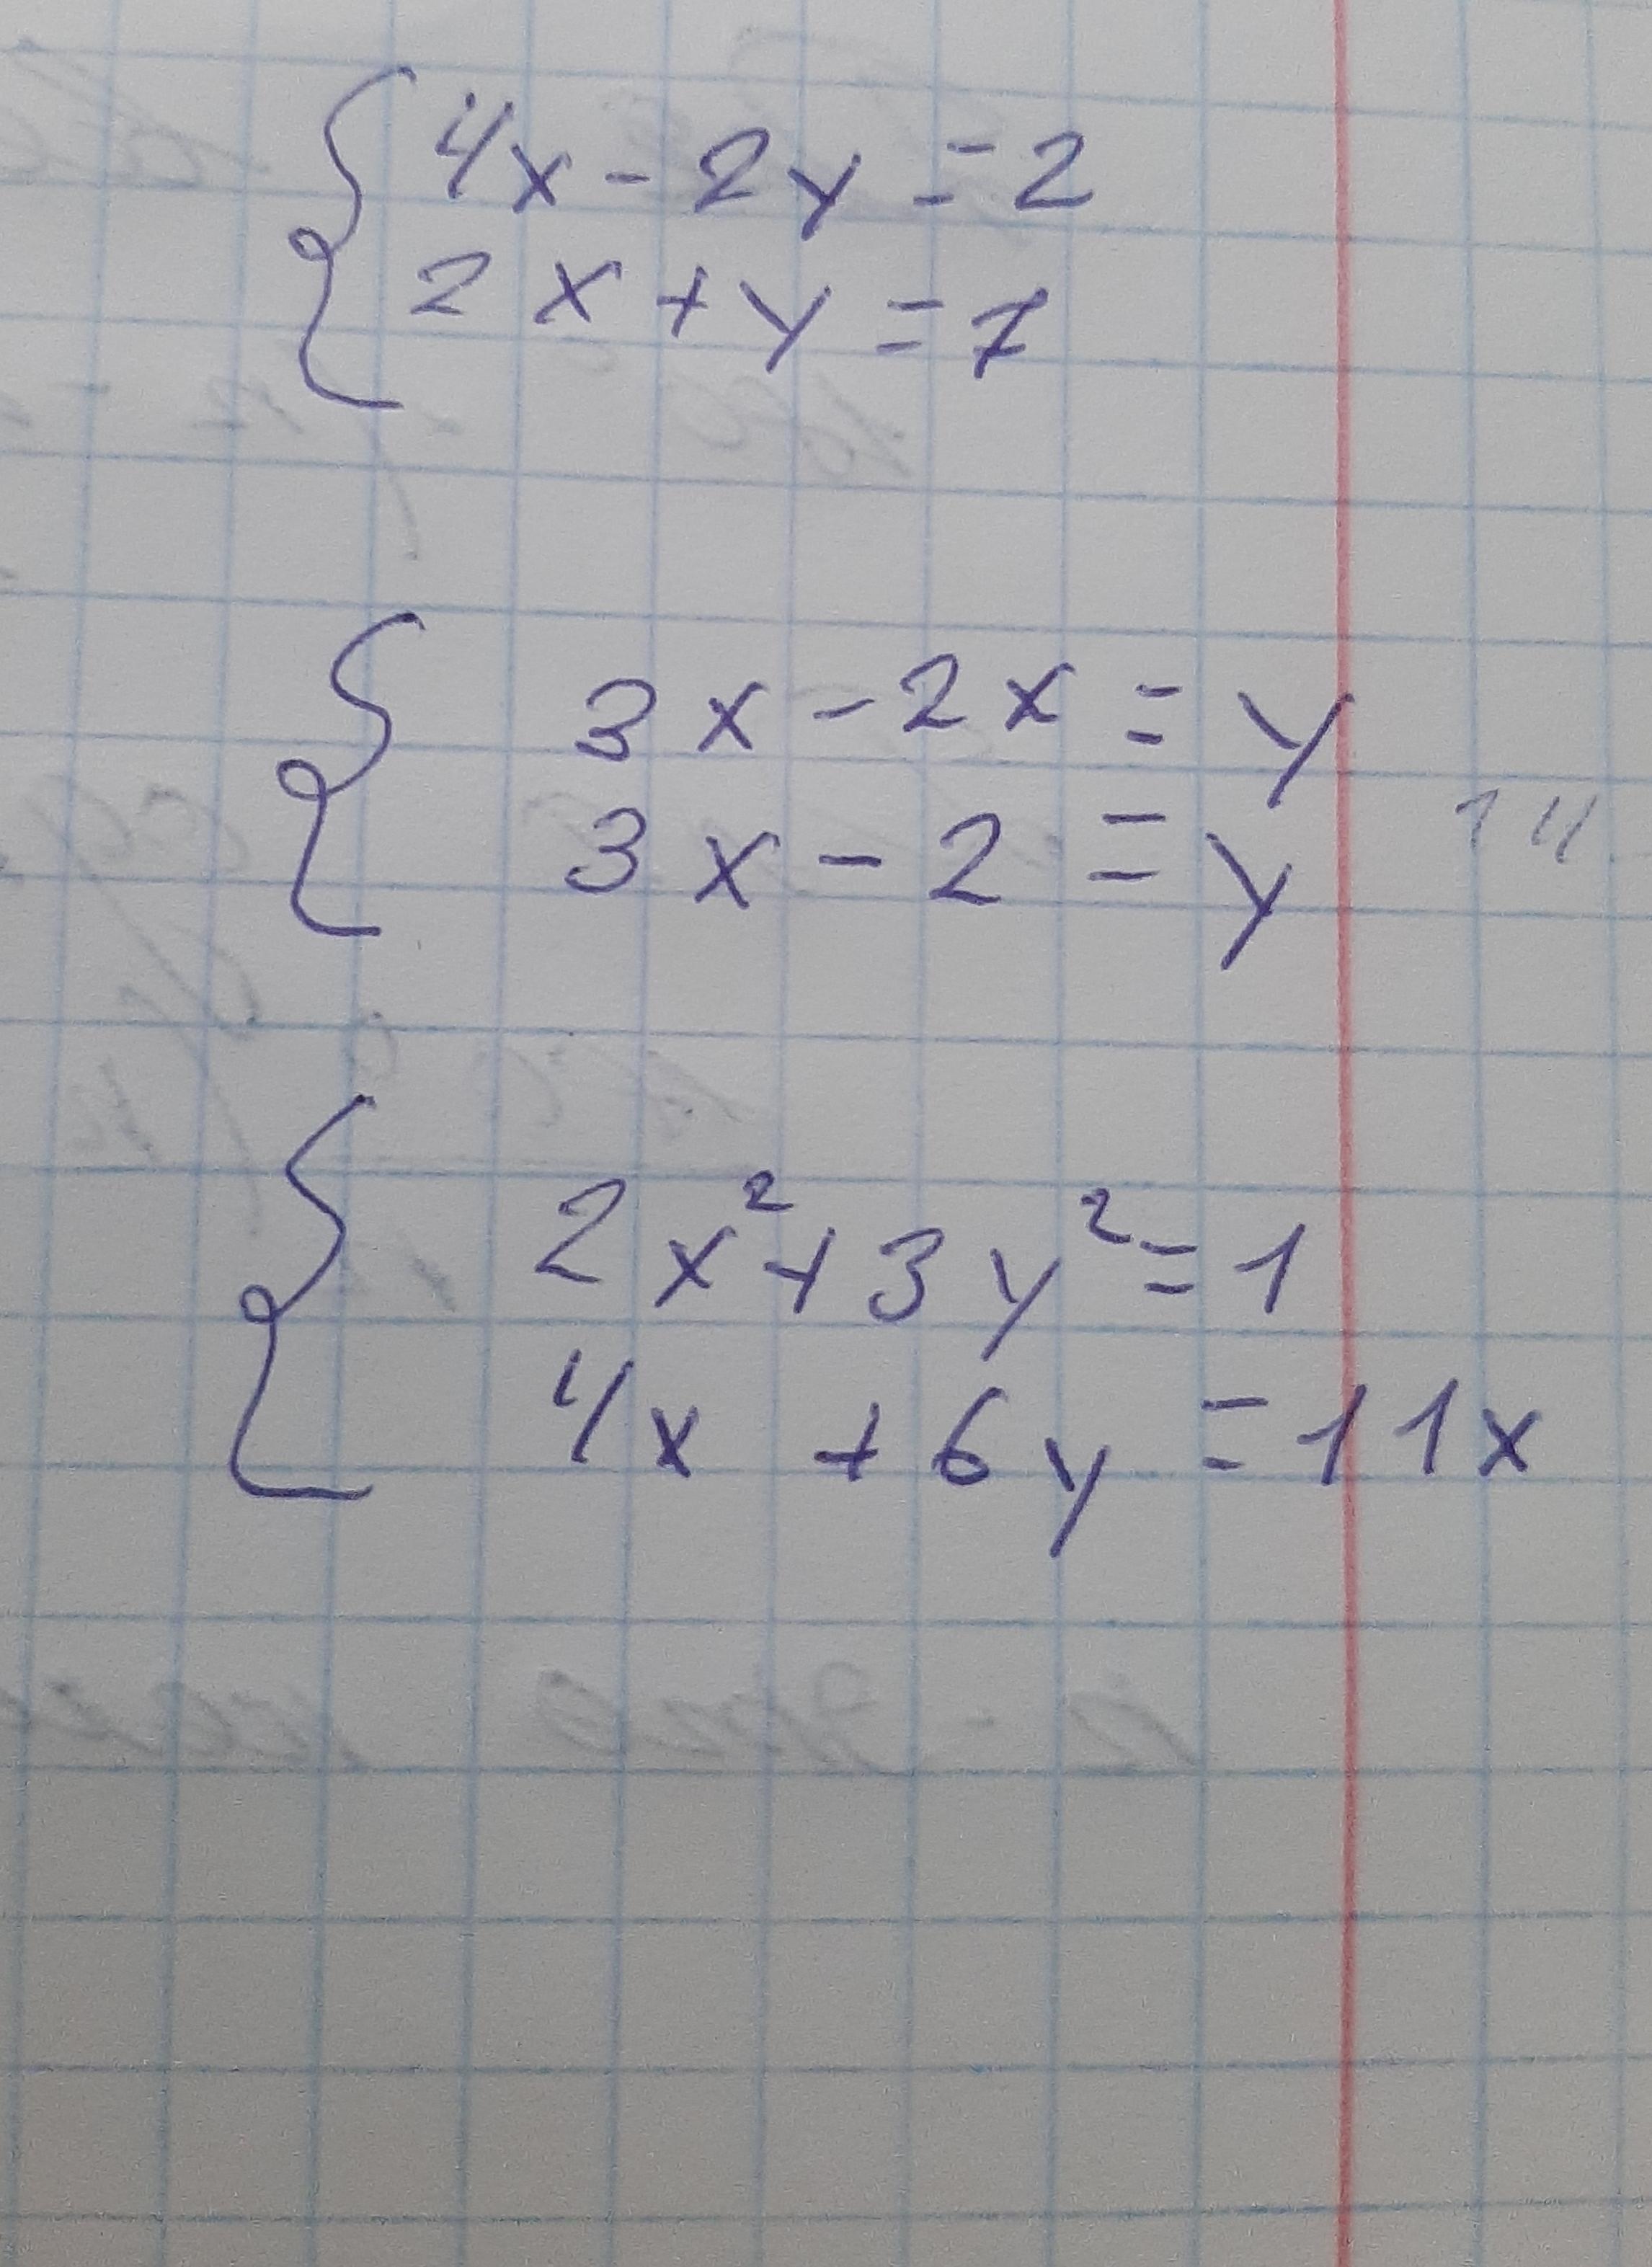 4x - 2y = 2
2x + y = 7
3x - 2x = y
3x - 2 = y
2x² + 3y² = 1
4x + 6y = 11x